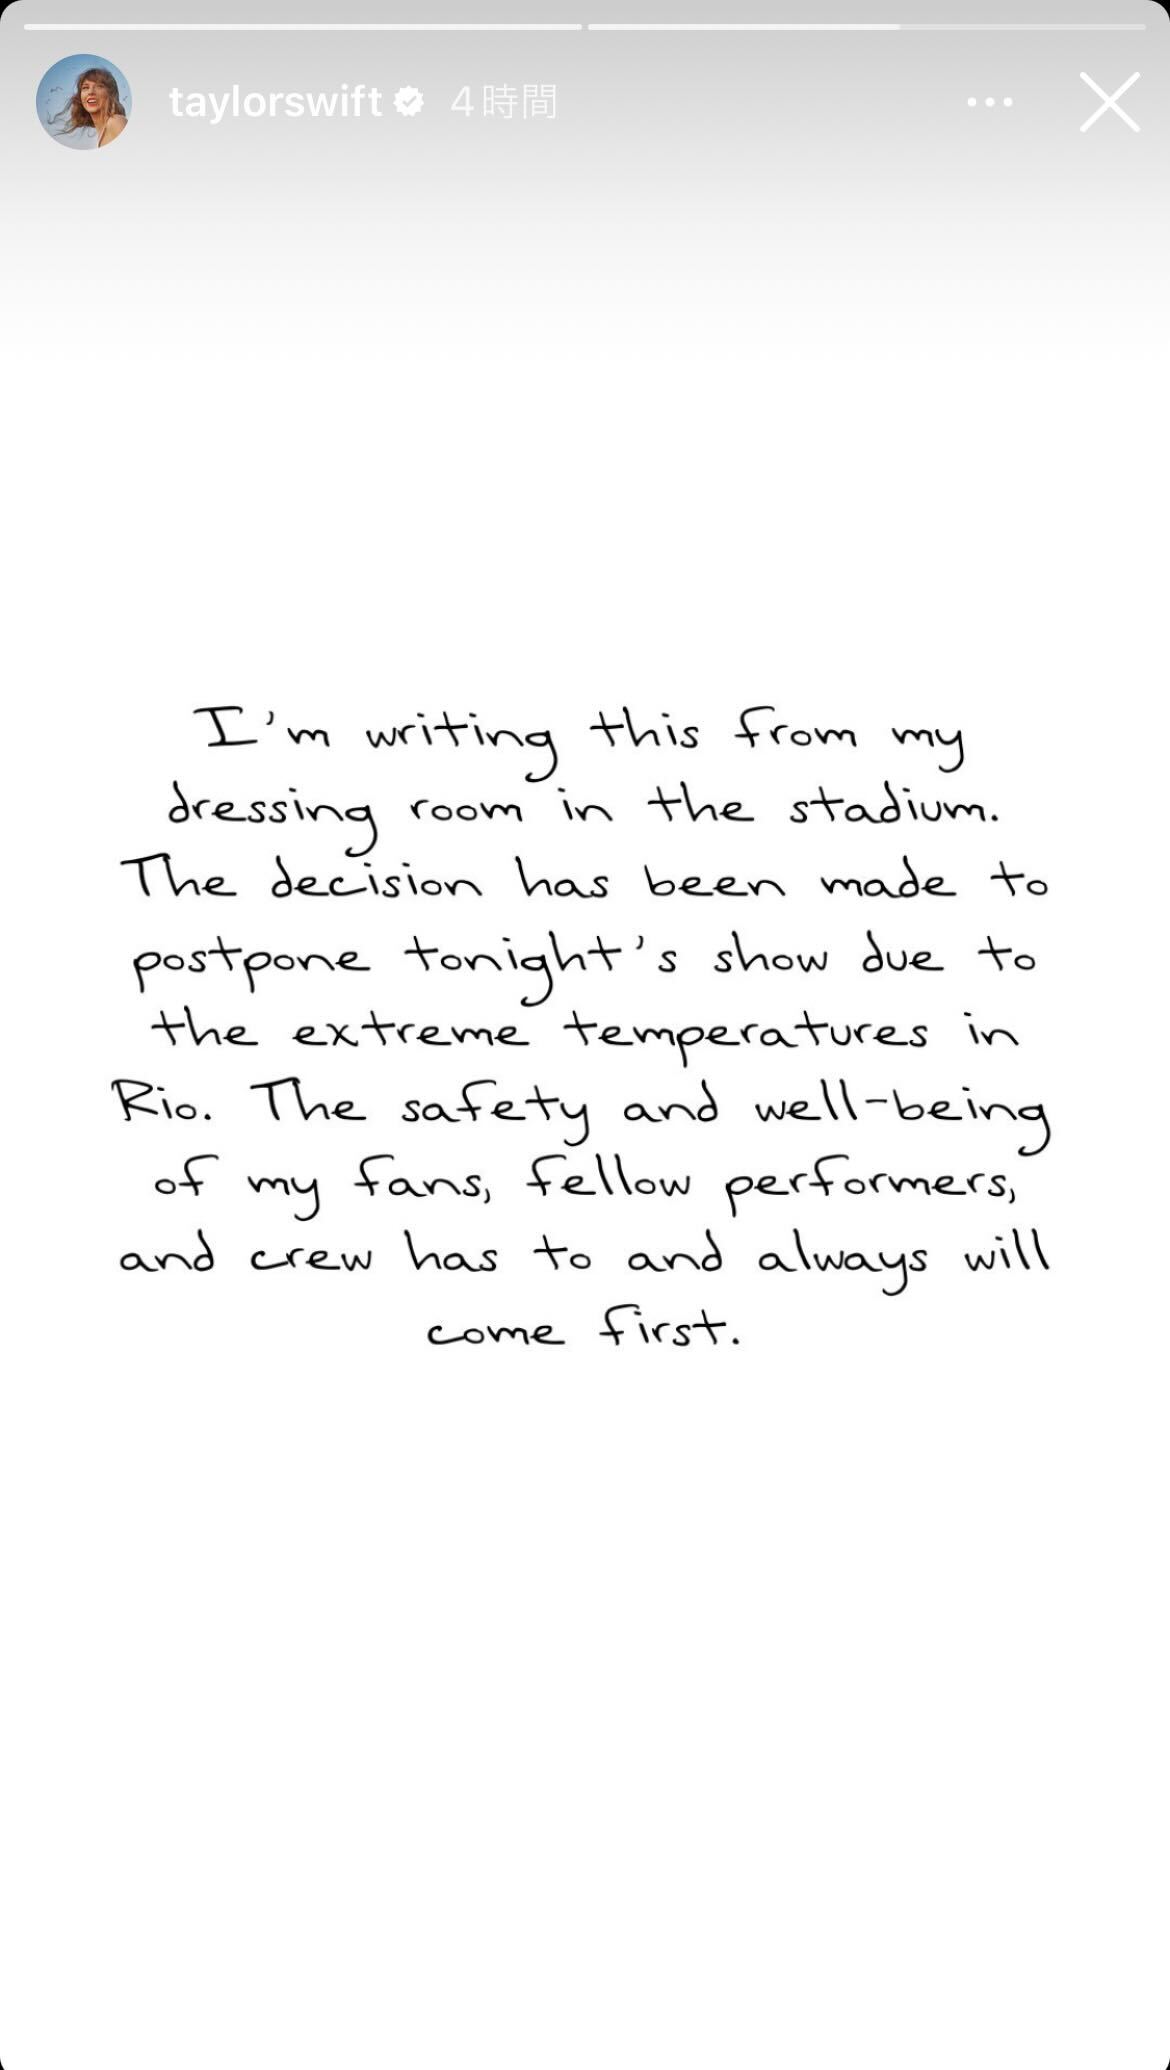 taylorswift 4時間
I'm writing this from my
dressing room in the stadium.
The decision has been made to
postpone tonight's show due to
the extreme temperatures in
Rio. The safety and well-being
of my fans, fellow performers,
and crew has to and always will
come first.